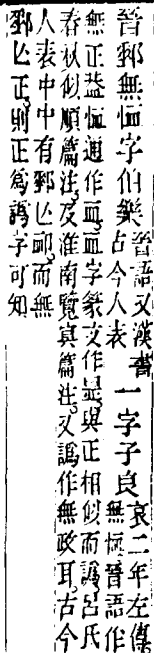 晉郵無恤字伯樂
晉語又漢書
古今人表
一字子良
哀二年左傳
無恤晉語作
無正蓋恤通作血血字篆文作與正相似而譌呂氏
春秋似順篇注及淮南覽冥篇注又譌作無政耳古今
人表中中有郵亾卹而無
郵亾正則正爲譌字可知